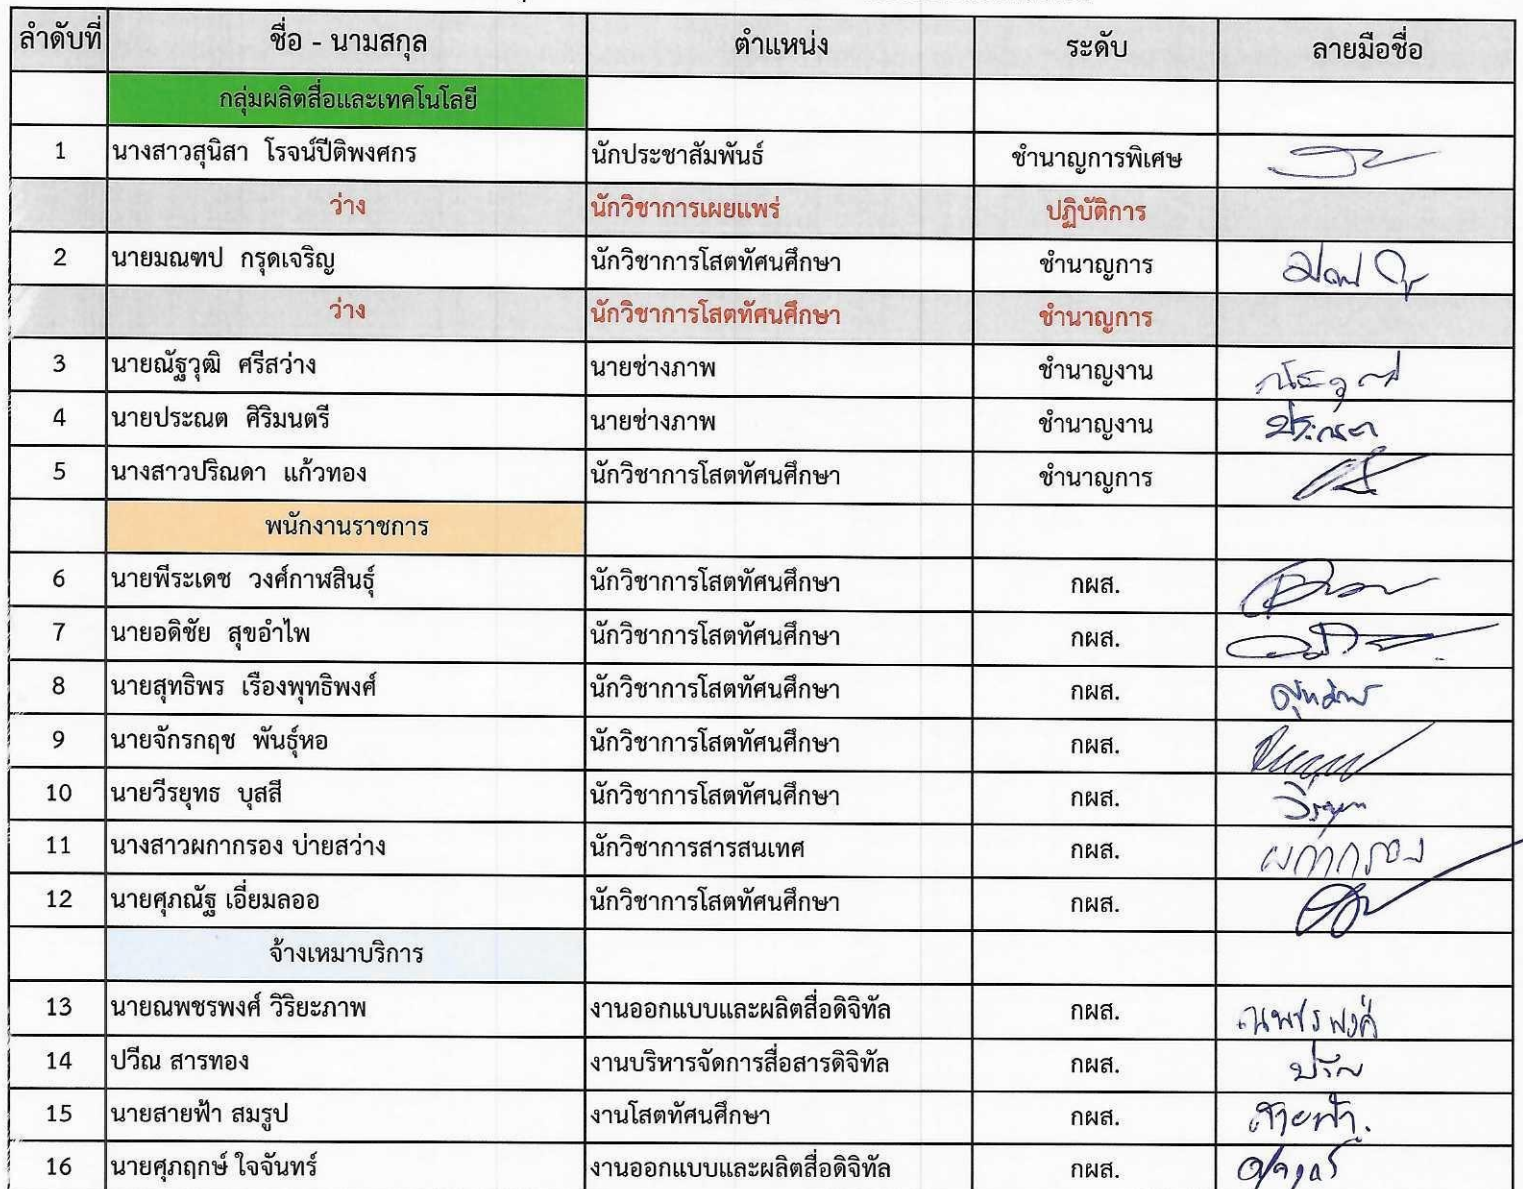 ลำดับที่ ชื่อ - นามสกุล ตำแหน่ง ระดับ ลายมือชื่อ
กลุ่มผลิตสื่อและเทคโนโลยี
1 นางสาวสุนิสา โรจน์ปีติพงศกร นักประชาสัมพันธ์ ชำนาญการพิเศษ
ว่าง นักวิชาการเผยแพร่ ปฏิบัติการ
2 นายมณฑป กรุดเจริญ นักวิชาการโสตทัศนศึกษา ชำนาญการ
ว่าง นักวิชาการโสตทัศนศึกษา ชำนาญการ
3 นายณัฐวุฒิ ศรีสว่าง นายช่างภาพ ชำนาญงาน
4 นายประณต ศิริมนตรี นายช่างภาพ ชำนาญงาน
5 นางสาวปริณดา แก้วทอง นักวิชาการโสตทัศนศึกษา ชำนาญการ
พนักงานราชการ
6 นายพีระเดช วงศ์กาฬสินธุ์ นักวิชาการโสตทัศนศึกษา กผส.
7 นายอดิชัย สุขอำไพ นักวิชาการโสตทัศนศึกษา กผส.
8 นายสุทธิพร เรืองพุทธิพงศ์ นักวิชาการโสตทัศนศึกษา กผส.
9 นายจักรกฤช พันธุ์หอ นักวิชาการโสตทัศนศึกษา กผส.
10 นายวีรยุทธ บุสสี นักวิชาการโสตทัศนศึกษา กผส.
11 นางสาวผกากรอง บ่ายสว่าง นักวิชาการสารสนเทศ กผส. ผกากรอง
12 นายศุภณัฐ เอี่ยมลออ นักวิชาการโสตทัศนศึกษา กผส.
จ้างเหมาบริการ
13 นายณพชรพงศ์ วิริยะภาพ งานออกแบบและผลิตสื่อดิจิทัล กผส. ณพชรพงศ์
14 ปวีณ สารทอง งานบริหารจัดการสื่อสารดิจิทัล กผส. ปวีณ
15 นายสายฟ้า สมรูป งานโสตทัศนศึกษา กผส. สายฟ้า.
16 นายศุภฤกษ์ ใจจันทร์ งานออกแบบและผลิตสื่อดิจิทัล กผส.